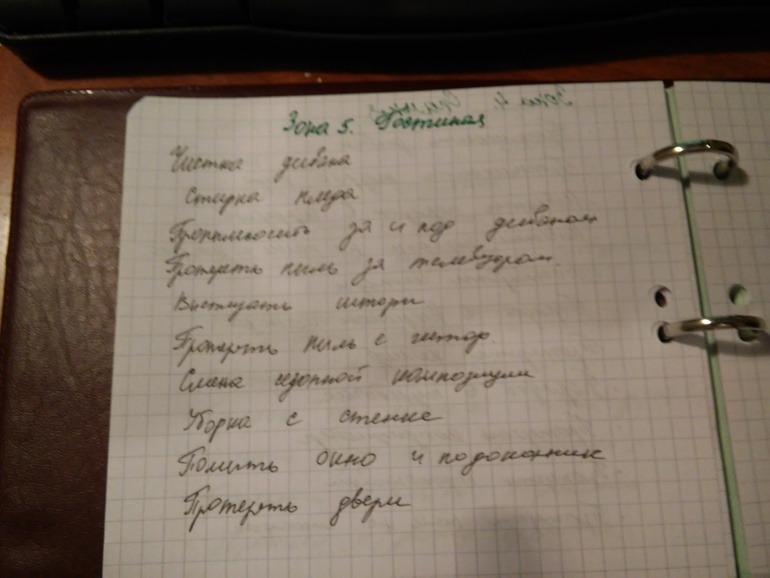 Зона 5. Гостиная
Чистка дивана
Стирка пледа
Пропылесосить за и под диваном
Протереть пыль за телевизором
Выстирать шторы
Протереть пыль с гитар
Смена сезонной композиции
Уборка в стенке
Помыть окно и подоконник
Протереть двери